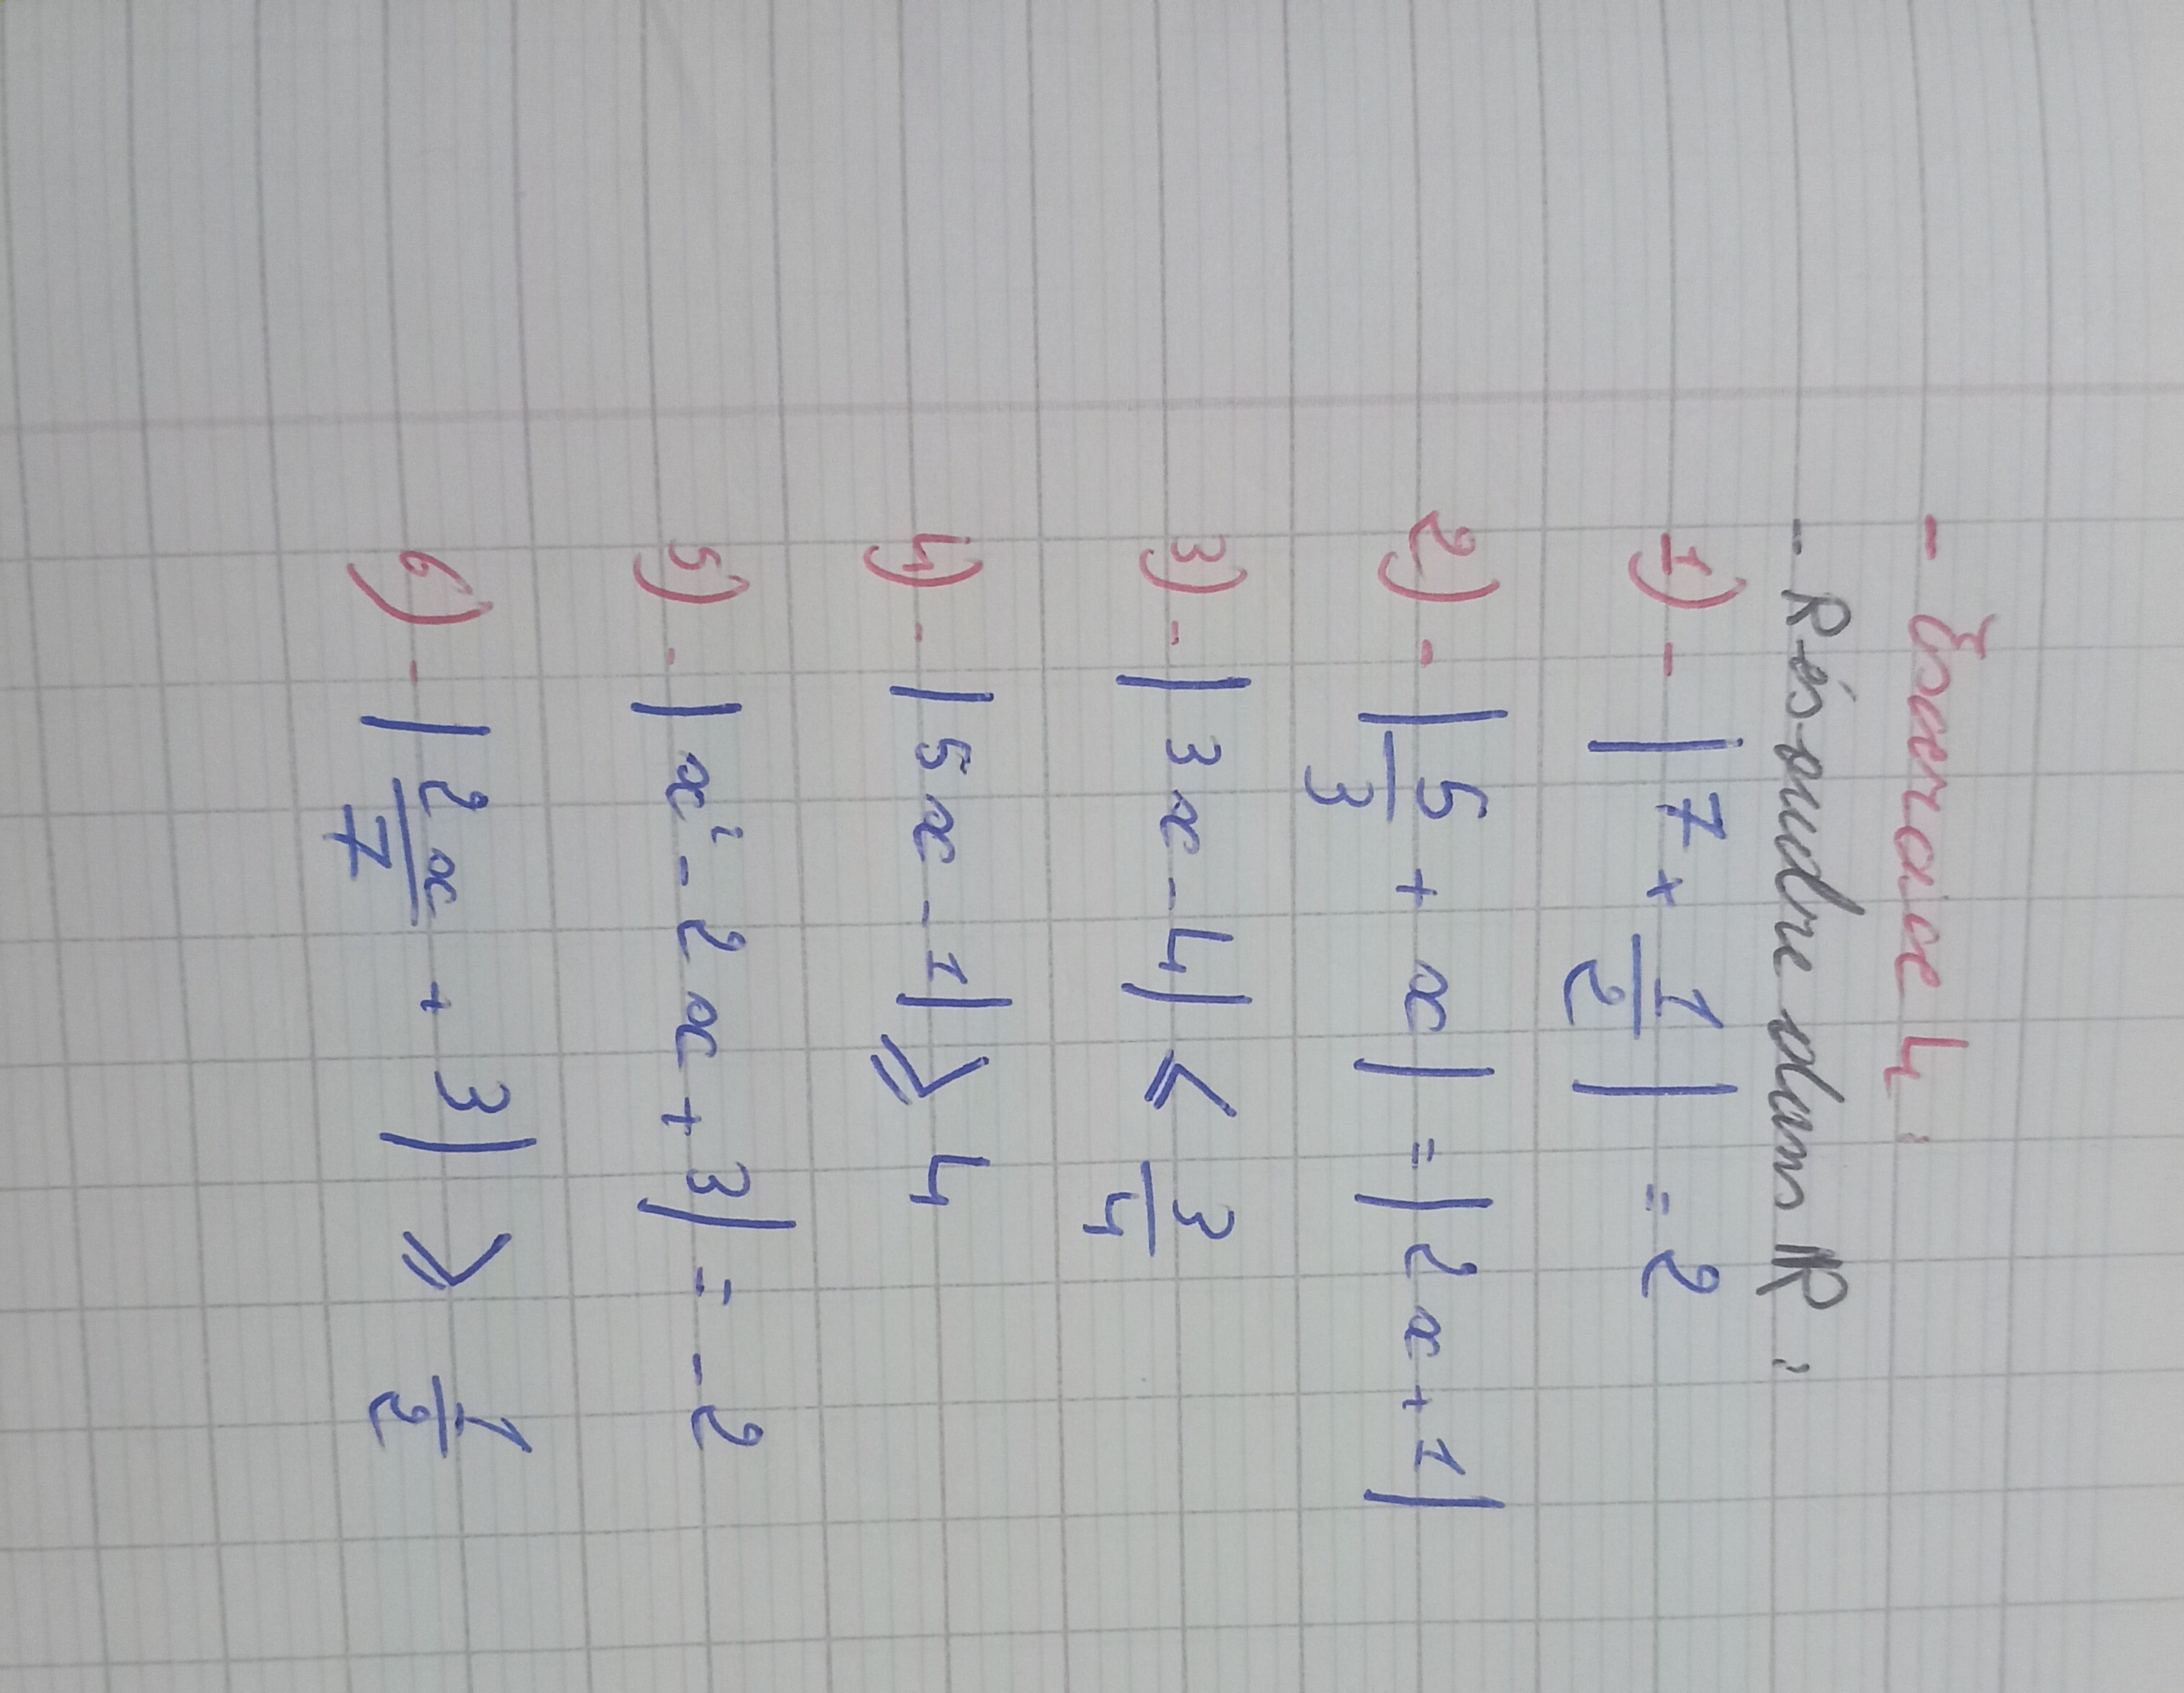 - Exercice 4:
- Résoudre dans ℝ:
1) - |7 + 1/2| = 2
2) - |5/3 + x| = |2x + 1|
3) - |3x - 4| ≤ 3/4
4) - |5x - 1| ≥ 4
5) - |x² - 2x + 3| = -2
6) - |2x/7 + 3| ≥ 1/2